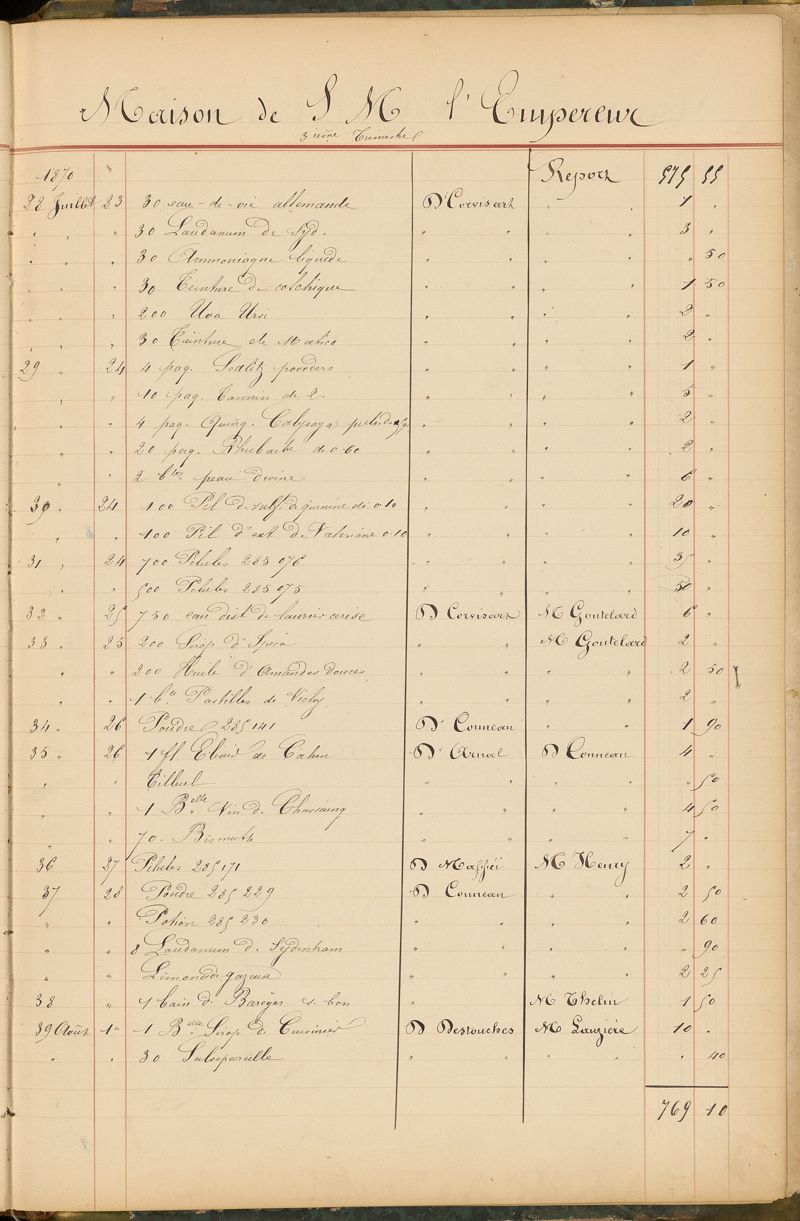 Maison de S M l'Empereur
3ieme Trimestre
1870 Report 575 55
22 Juillet 23 30 eau-de-vie allemande Dr Corvisart " " 1 "
" " " 30 Laudanum de Syd. " " " " 3 "
" " " 30 Ammoniaque liquide " " " " " 50
" " " 30 Teinture de colchique " " " " 1 50
" " " 200 Uva Ursi " " " " 2 "
" " " 30 Teinture de Matico " " " " 2 "
29 " 24 4 paq. Sedlitz powders " " " " 1 "
" " 10 paq. Tannin de 2. " " " " 5 "
" " 4 paq. Quinq. Calysaya " " " " 2 "
" " 20 paq. Rhubarbe de 0 60 " " " " 2 "
" " 2 btes peau divine " " " " 6 "
30 " 24 100 Pil de sulf. de quinine de 0 10 " " " " 20 "
" " 100 Pil d'ext de Valeriane 0 10 " " " " 10 "
31 " 24 700 Pilules 285 076 " " " " 35 "
" " 500 Pilules 285 075 " " " " 50 "
32 " 25 750 eau dist de laurier cerise D Corvisart M Goutelard 6 "
33 " 25 200 Sirop d'Ipéca " " M Goutelard 2 "
" " 200 Huile d'Amandes douces " " " " 2 50
" " 1 bte Pastilles de Vichy " " " " 2 "
34 " 26 Poudre 285 141 Dr Conneau " " 1 90
35 " 26 1 fl Elixir de Cahen Dr Arnal D Conneau 4 "
" " Tilleul " " " " " 50
" " 1 Belle Vin de Chassaing " " " " 4 50
" " 70. Bismuth " " " " 7 "
36 27 Pilules 285 171 D Maffei M Henry 2 "
37 28 Poudre 285 229 D Conneau " " 2 50
" " Potion 285 230 " " " " 2 60
" " 8 Laudanum de Sydenham " " " " " 90
" " Limonade gazeuse " " " " 2 25
38 " 1 bain de Barèges " M Thelin 1 50
39 Août 1er 1 Belle Sirop de Cuisinier D Destouches M Lauzière 10 "
" " 30 Salsepareille " " " " " 40
769 10